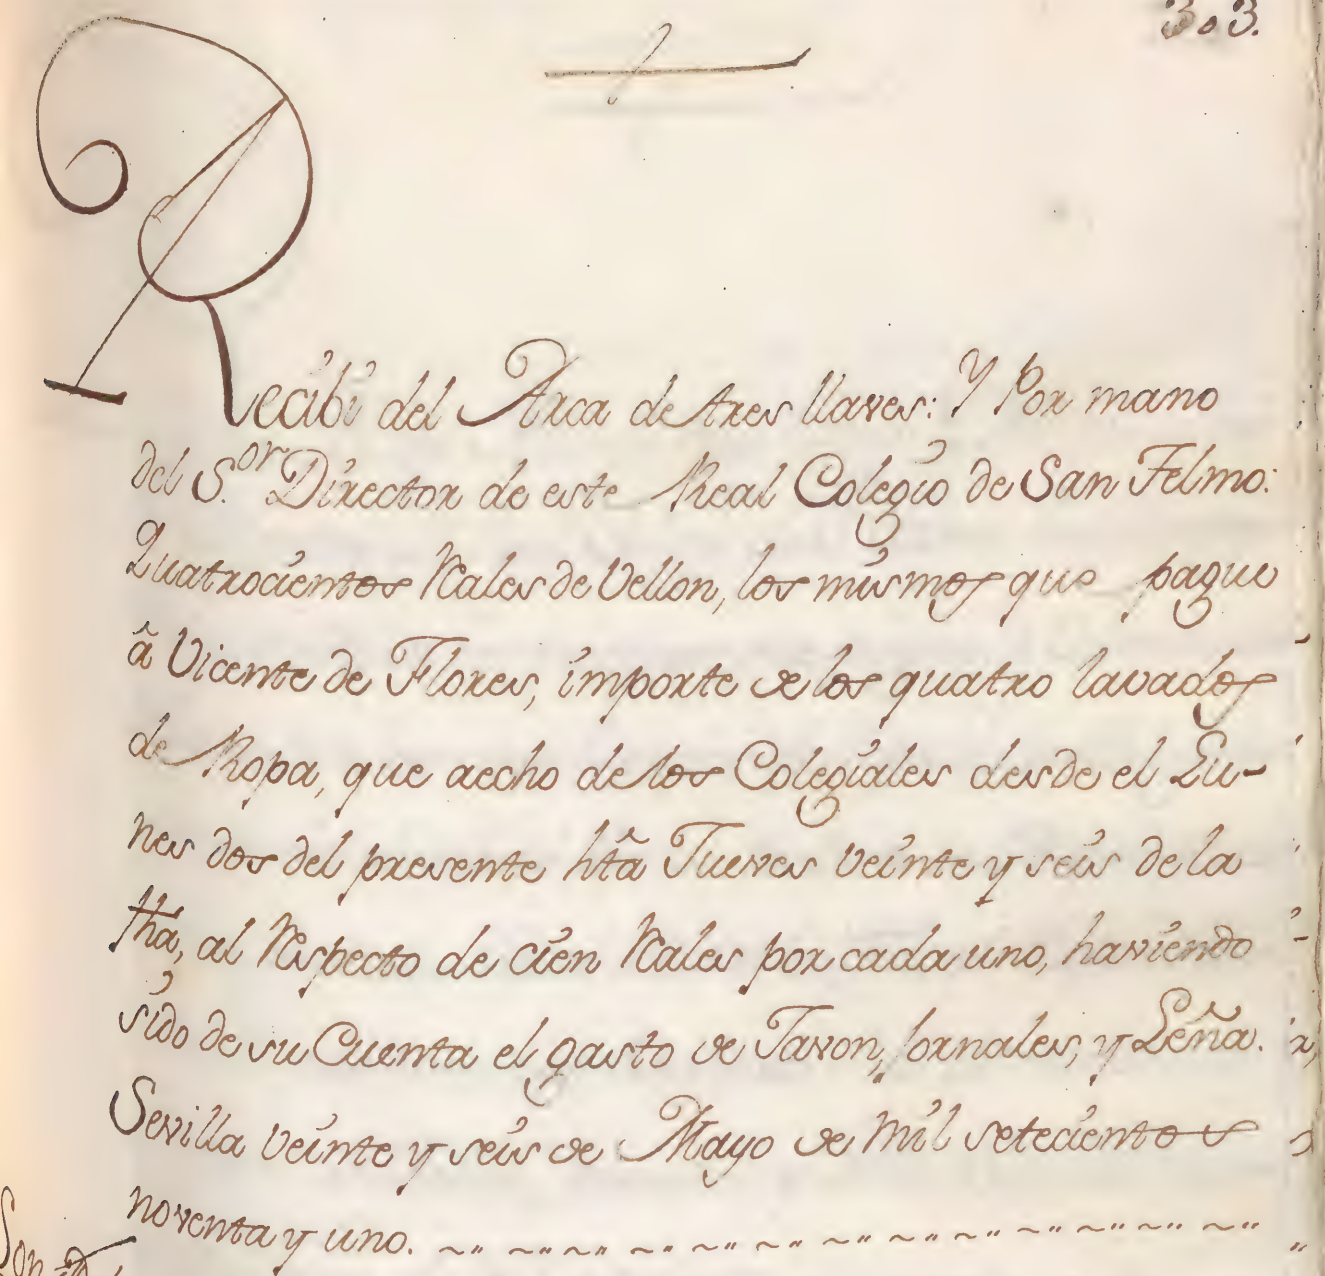 303.
Recibi del Arca de tres llaves: Y Por mano
del S.or Director de este Real Colegio de San Telmo:
Quatrocientos Rales de Vellon, los mismos que pague
â Vicente de Flores, importe de los quatro lavados
de Ropa, que aecho de los Colegiales desde el Lu-
nes dos del presente htâ Jueves veinte y seis de la
fha, al Respecto de cien Rales por cada uno, haviendo
sido de su Cuenta el gasto de Javon, Jornales, y Leña.
Sevilla veinte y seis de Mayo de mil setecientos
noventa y uno.
Son